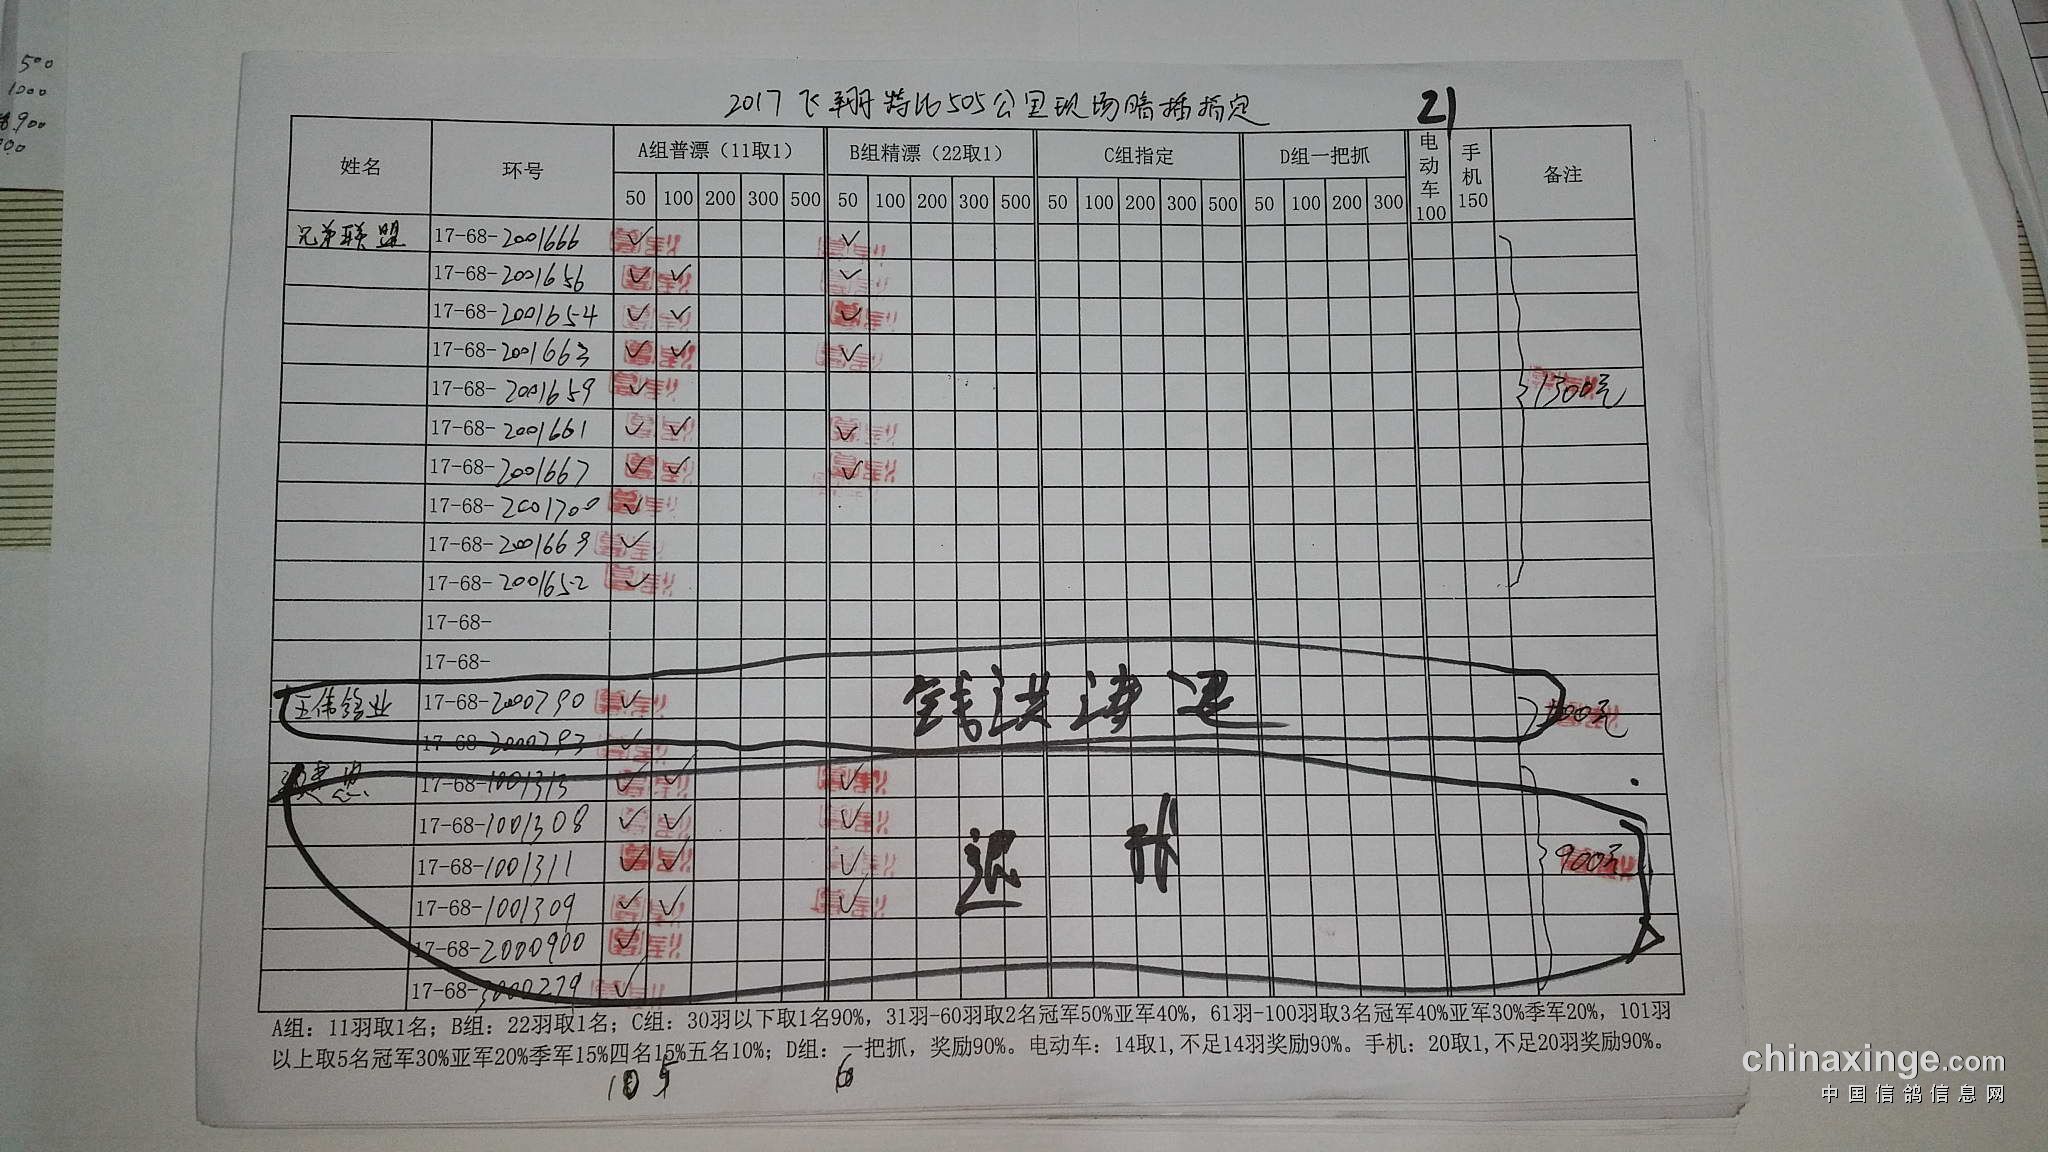 500
1000
900
2017飞翔特比505公里现场暗插指定 21
姓名 环号 A组普漂（11取1） B组精漂（22取1） C组指定 D组一把抓 电动车100 手机150 备注
50 100 200 300 500 50 100 200 300 500 50 100 200 300 500 50 100 200 300
兄弟联盟 17-68-2001666 ✓ ✓
17-68-2001656 ✓ ✓ ✓
17-68-2001654 ✓ ✓ ✓
17-68-2001663 ✓ ✓ ✓
17-68-2001659 ✓ 1300元
17-68-2001661 ✓ ✓ ✓
17-68-2001667 ✓ ✓ ✓
17-68-2001700 ✓
17-68-2001669 ✓
17-68-2001652 ✓
17-68-
17-68-
17-68-2000290 ✓ 钱洪涛退
17-68-2000293 ✓
17-68-1001313 ✓ ✓ ✓
17-68-1001308 ✓ ✓ ✓
17-68-1001311 ✓ ✓ ✓ 退 900元
17-68-1001309 ✓ ✓ ✓
17-68-2000900 ✓
17-68-3000279 ✓
A组：11羽取1名；B组：22羽取1名；C组：30羽以下取1名90%，31羽-60羽取2名冠军50%亚军40%，61羽-100羽取3名冠军40%亚军30%季军20%，101羽
以上取5名冠军30%亚军20%季军15%四名15%五名10%；D组：一把抓，奖励90%。电动车：14取1,不足14羽奖励90%。手机：20取1,不足20羽奖励90%。
10 5 6
chinaxinge.com
中国信鸽信息网